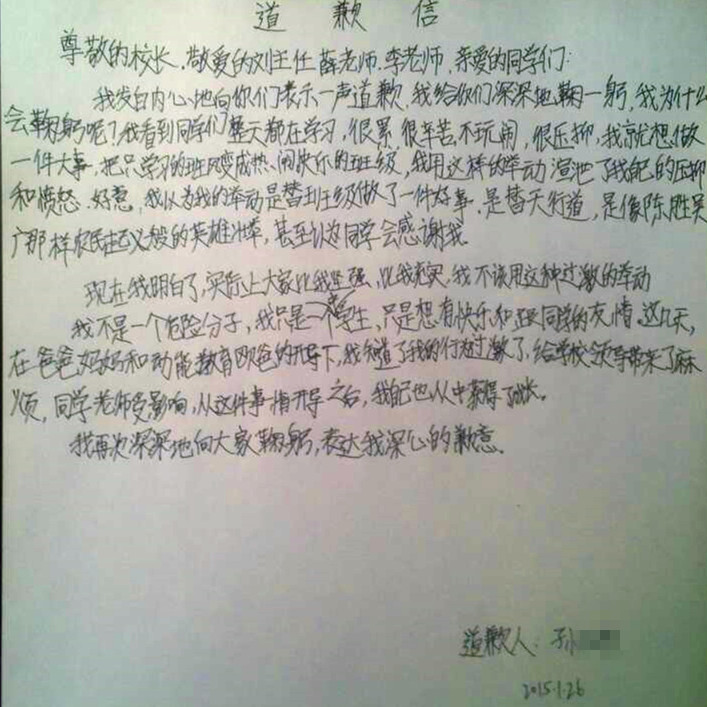 道歉信
尊敬的校长、敬爱的刘主任 薛老师、李老师、亲爱的同学们:
我发自内心地向你们表示一声道歉,我给你们深深地鞠一躬,我为什么
会鞠躬呢?我看到同学们整天都在学习,很累 很辛苦,不玩闹,很压抑,我就想做
一件大事,把只学习的班风变成热闹快乐的班级,我用这样的举动渲泄了我自己的压抑
和愤怒.好意,我认为我的举动是替班级做了一件好事.是替天行道,是像陈胜吴
广那样农民起义般的英雄壮举,甚至认为同学会感谢我.
现在我明白了,实际上大家比我坚强,比我充实,我不该用这种过激的举动
我不是一个危险分子,我只是一个学生,只是想有快乐和同学的友情.这几天,
在爸爸妈妈和动能教育欧爸的开导下,我知道了我的行为过激了,给学校领导带来了麻
烦,同学老师受影响,从这件事情开导之后,我自己也从中获得了成长.
我再次深深地向大家鞠躬,表达我深心的歉意.
道歉人:孙
2015.1.26